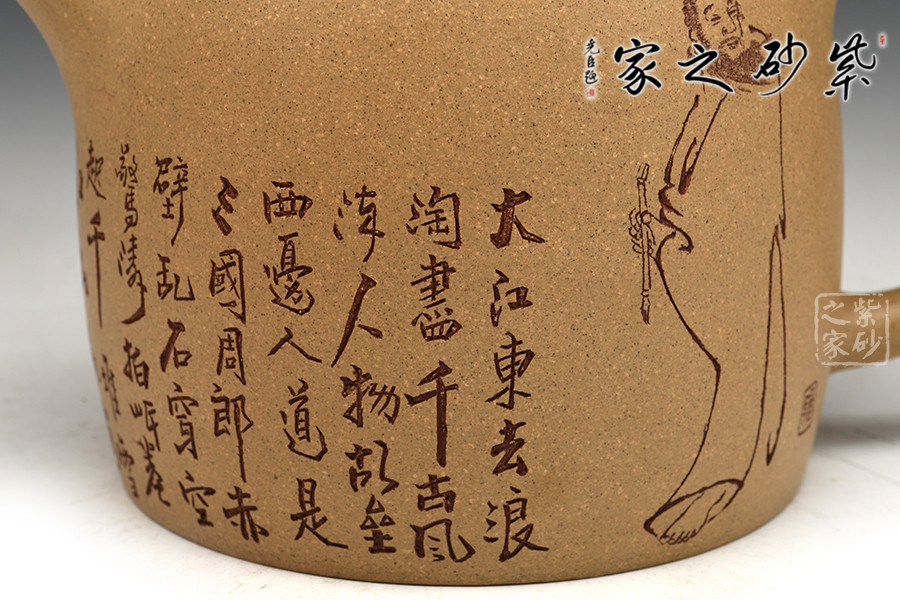 紫砂之家
大江東去浪
淘盡千古風
流人物故壘
西邊人道是
三國周郎赤
壁乱石穿空
驚濤拍岸卷
起千堆雪
紫砂
之家